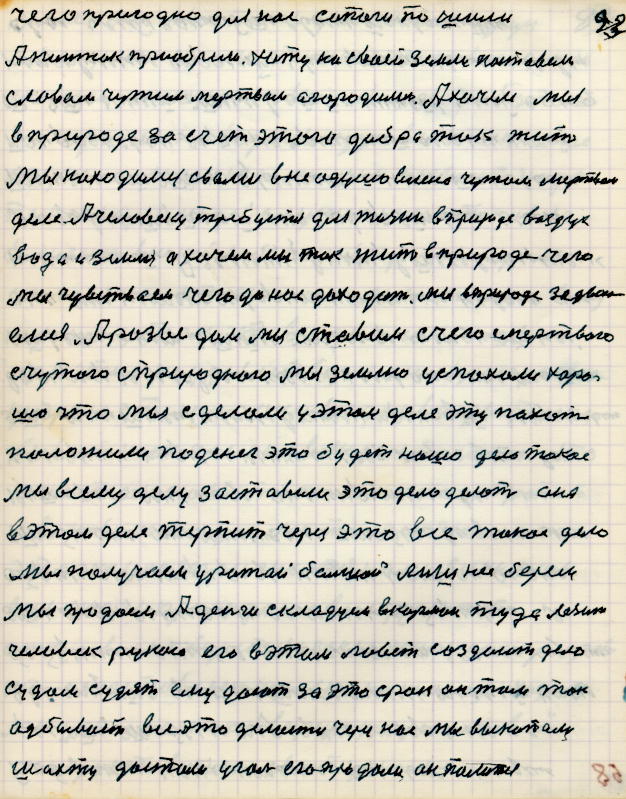 чего пригодно для нас сотога по шили 22
А потток приобрели. хату на своей земле поставели
словам чужим мертвам огородили. А хочем мы
в природе за счет этого добра так жить
Мы находимся свами в не одушовлено чужом мертвом
деле. А человеку требуется для жизни в природе воздух
вода и земля а хочем мы так жить в природе чего
мы чувствваем чего до нас доходит. мы в природе
елися. А розве дом мы ставим с чего с мертвого
с чужого с природного мы землю успохали харо-
шо что мы сделали у этом деле эту пахоту
положили по денег это будет нашо дело такое
мы всему делу заставили это дело делоть оно
в этом деле терпит через это все такое дело
мы получаем урожай большой или не берем
мы продаем А денги складуем в карман туда
человек рукою его в этом ловят создают дело
судом судят ему дают за это срок он там так
одбывает все это делоится через нас мы выкопали
шахту достали угол его продали он
68